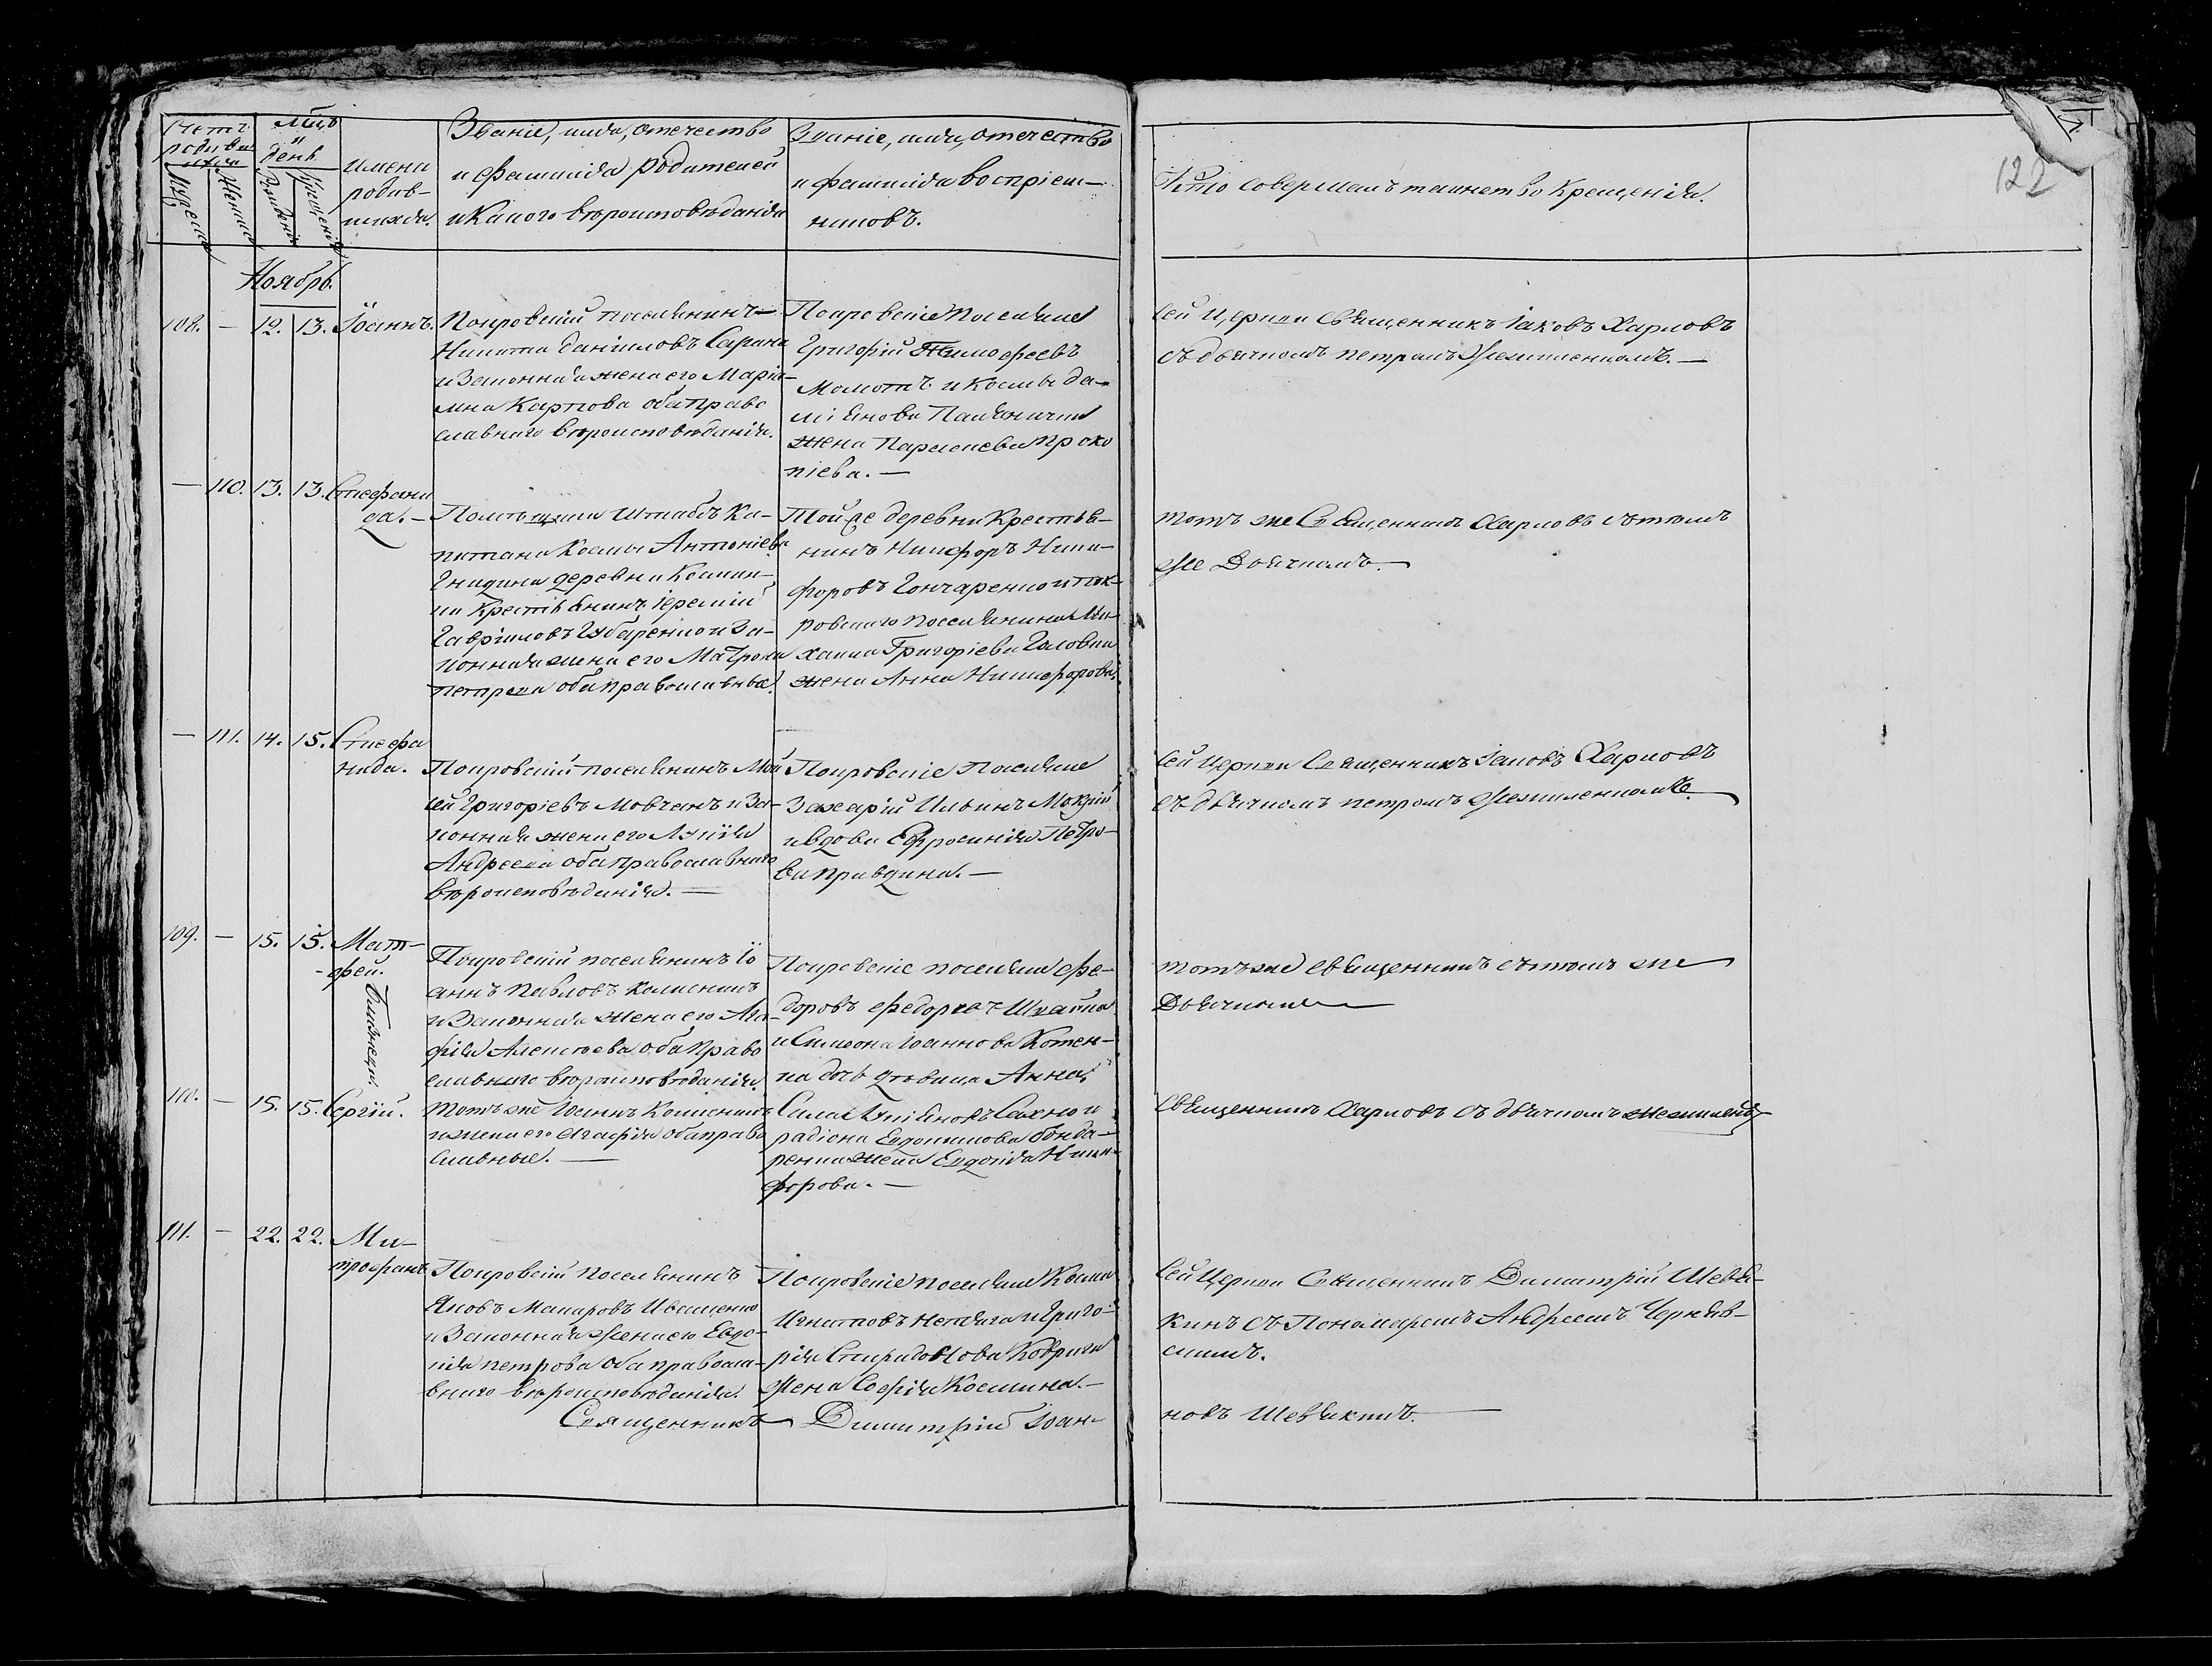 Счетъ родившихся
Мужеска
Женска
Мѣсяцъ и день
Рожденія
Крещенія
Имена родившихся.
Званіе, имя, отечество
и фамилія родителей
и какого вѣроисповѣданія
Званіе, имя, отечество
и фамилія воспріем-
никовъ.
Кто совершалъ таинство крещенія.
122
Ноябрь.
108. — 12. 13. Іоаннъ.
Покровскій поселянинъ
Никита Даніиловъ Сарана
и законная жена его Марі-
мна Карпова оба право
славнаго вѣроисповѣданія.
Покровскіе поселяне
Григорій Тимофеевъ
Мамотъ и Космы Да-
міянова Паляницы
жена Параскева Проко
піева. —
Сей церкви священникъ Іаковъ Харловъ
съ дьячкомъ Петромъ Жемчленкомъ. —
— 110. 13. 13. Стефани
да. —
Помѣщика Штабсъ Ка-
питана Космы Антоніева
Гнидина деревни Космин-
ки крестьянинъ Іеремій
Гавріиловъ Губаренко и за-
конная жена его Матрона
Петрова оба православные.
Той же деревни крестья-
нинъ Никифоръ Ники-
форовъ Гончаренко и пок-
ровскаго поселянина Ми-
хаила Григоріева Головка
жена Анна Никифорова.
тотъ же священникъ Харловъ съ тѣмъ
же дьячкомъ.
— 111. 14. 15. Стефа
нида.
Покровскій поселянинъ Мои
сей Григоріевъ Мовчанъ и за-
конная жена его Лукія
Андреева оба православнаго
вѣроисповѣданія. —
Покровскіе поселяне
Захарій Ильинъ Мокрій
и вдова Ефросинія Петро-
ва Правдина. —
Сей церкви священникъ Іаковъ Харловъ
съ дьячкомъ Петромъ
109. — 15. 15. Мат-
фей.
Близнецы.
Покровскій поселянинъ Іо
аннъ Павловъ Колисникъ
и законная жена его Ага-
фія Алексѣева оба право
славнаго вѣроисповѣданія.
Покровскіе поселяне Фе-
доровъ Шкайна
и Симеона Іоаннова Котен-
ка дочь дѣвица Анна.
тотъ же священникъ съ тѣмъ же
дьячкомъ
110. — 15. 15. Сергій.
Тотъ же Іоаннъ Колисникъ
и жена его Агафія оба право
славные. —
Сахно и
Радіона Евдокимова Бонда-
ренка жена Евдокія Ники-
форова. —
Священникъ Харловъ съ дьячкомъ
111. — 22. 22. Ми-
трофанъ.
Покровскій поселянинъ
Яковъ Макаровъ Иващенко
и законная жена его Евдо-
кія Петрова оба правосла-
внаго вѣроисповѣданія.
Покровскіе поселяне Косма
Игнатовъ и Григо-
рія Спиридонова Кобрина
жена Софія Космина. —
Сей церкви священникъ Димитрій Шевя-
кинъ съ пономаремъ Андреемъ Черняв-
скимъ.
Священникъ Димитрій Іоан-
новъ Шевякинъ.